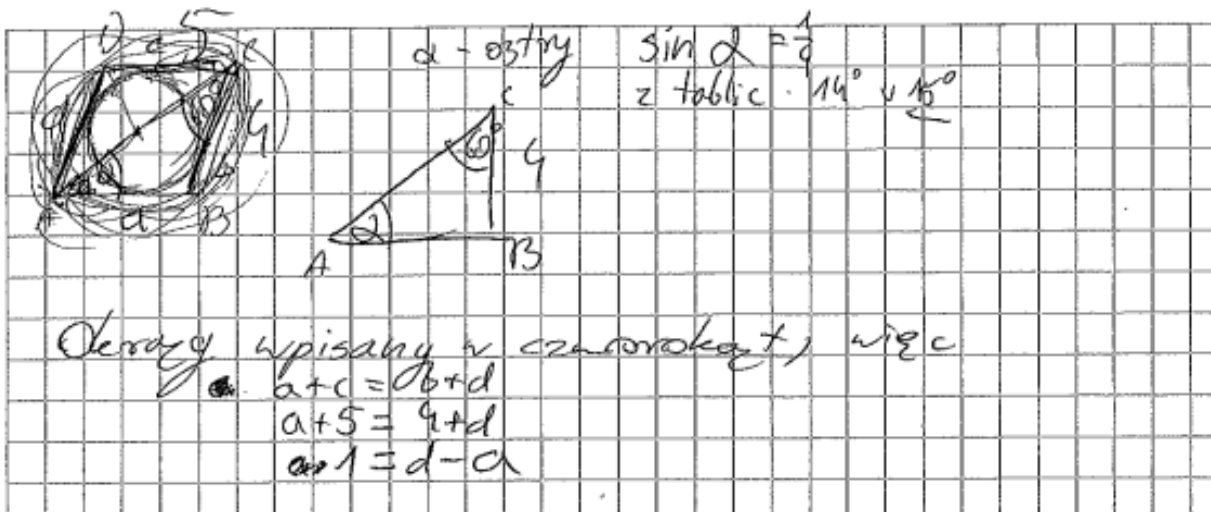 D c 5 C
d 4
A a B
α - ostry sin α = 1/4
z tablic 14° v 15°
C
60° 4
α
A B
Okrąg wpisany w czworokąt, więc
a+c = b+d
a+5 = 4+d
1 = d-a